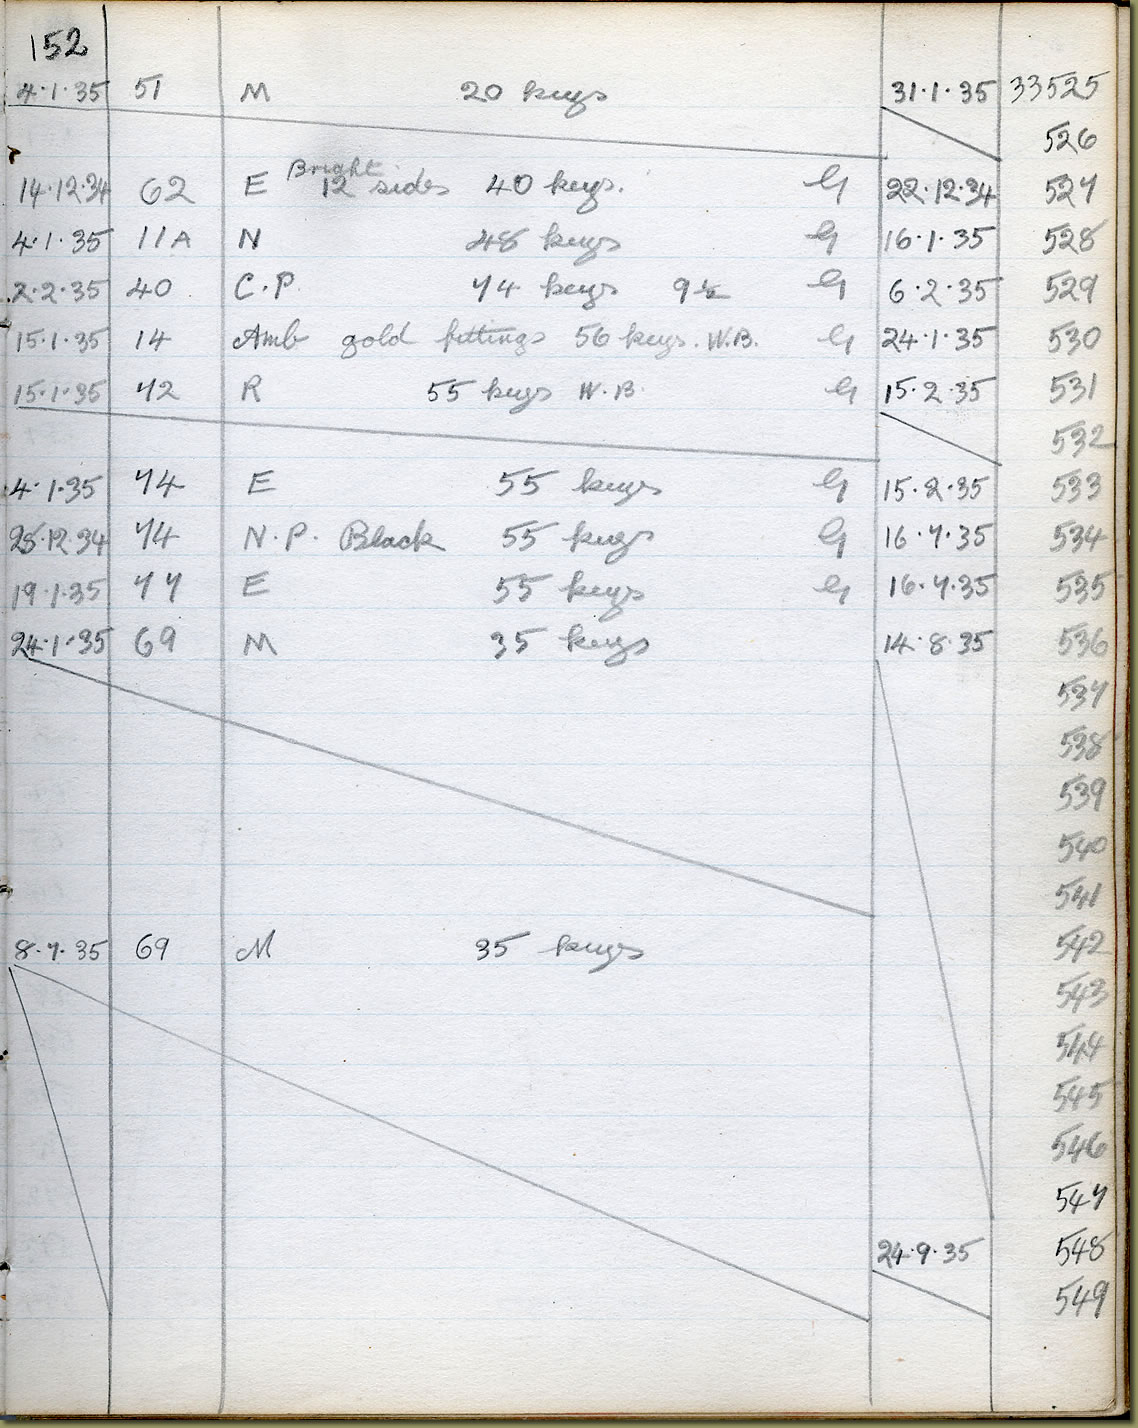 152
4·1·35 51 M 20 keys 31·1·35 33525
526
14·12·34 62 E Bright 12 sides 40 keys. G 22·12·34 527
4·1·35 11A N 48 keys G 16·1·35 528
2·2·35 40 C.P. 74 keys 9½ G 6·2·35 529
15·1·35 14 Amb gold fittings 56 keys. W.B. G 24·1·35 530
15·1·35 72 R 55 keys W.B. G 15·2·35 531
532
4·1·35 74 E 55 keys G 15·2·35 533
28·12·34 74 N.P. Black 55 keys G 16·7·35 534
19·1·35 77 E 55 keys G 16·7·35 535
24·1·35 69 M 35 keys 14·8·35 536
537
538
539
540
541
8·7·35 69 M 35 keys 542
543
544
545
546
547
24·9·35 548
549